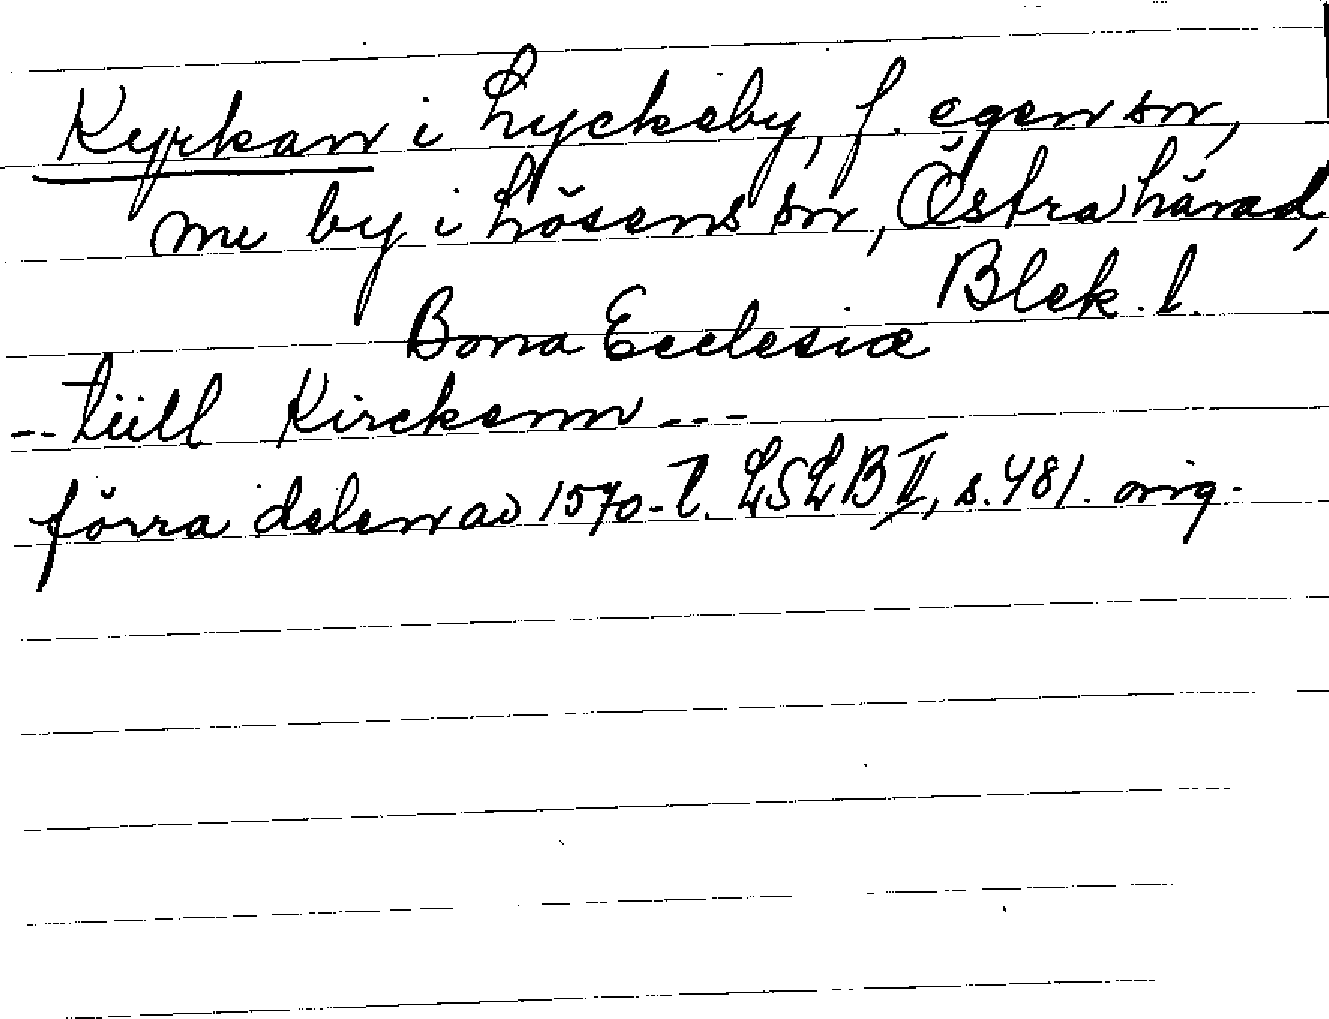 Kyrkan i Lyckeby, f. egen sn,
nu by i Lösens sn, Östra härad,
Blek. l.
Bona Ecclesiæ
-- tiill Kirckenn ---
förra delen av 1570-t. LSLB II, s. 481. orig.